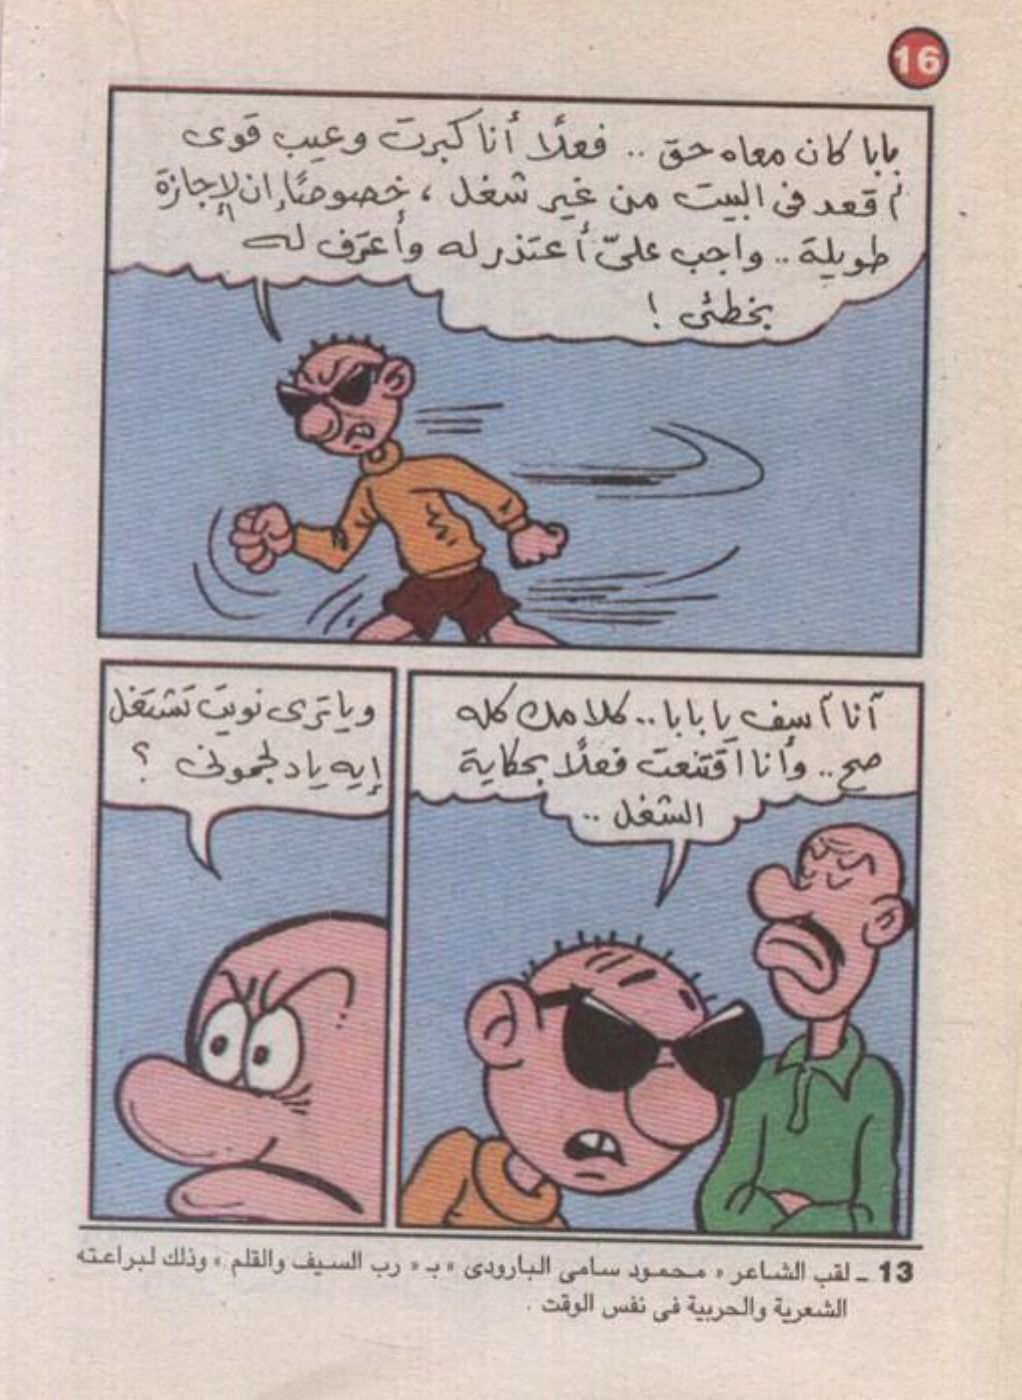 16
بابا كان معاه حق .. فعلًا أنا كبرت وعيب قوى
أقعد فى البيت من غير شغل ، خصوصًا إن الإجازة
طويلة .. واجب علىّ أعتذر له وأعترف له
بخطئى !
أنا آسف يا بابا .. كلامك كله
صح .. وأنا اقتنعت فعلًا بحكاية
الشغل ..
وياترى نويت تشتغل
إيه ياد لجمونى ؟
13 ــ لقب الشاعر « محمود سامى البارودى » بـ « رب السيف والقلم » وذلك لبراعته
الشعرية والحربية فى نفس الوقت .